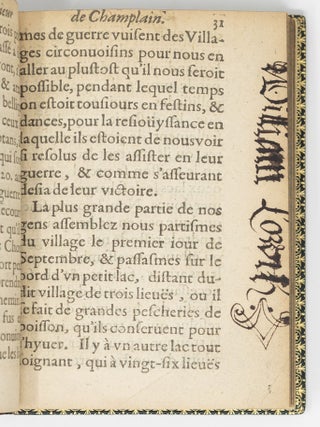 de Champlain. 31
mes de guerre vuisent des Villa-
ges circonuoisins pour nous en
aller au plustost qu'il nous seroit
possible, pendant lequel temps
on estoit tousiours en festins, &
dances, pour la resioüyssance en
laquelle ils estoient de nousvoir
si resolus de les assister en leur
guerre, & comme s'asseurant
desia de leur victoire.
La plus grande partie de nos
gens assemblez nous partismes
du village le premier iour de
Septembre, & passasmes sur le
bord d'vn petit lac, distant du-
dit village de trois lieuës, ou il
se fait de grandes pescheries de
poisson, qu'ils conseruent pour
l'hyuer. Il y à vn autre lac tout
ioignant, qui à vingt-six lieuës
William